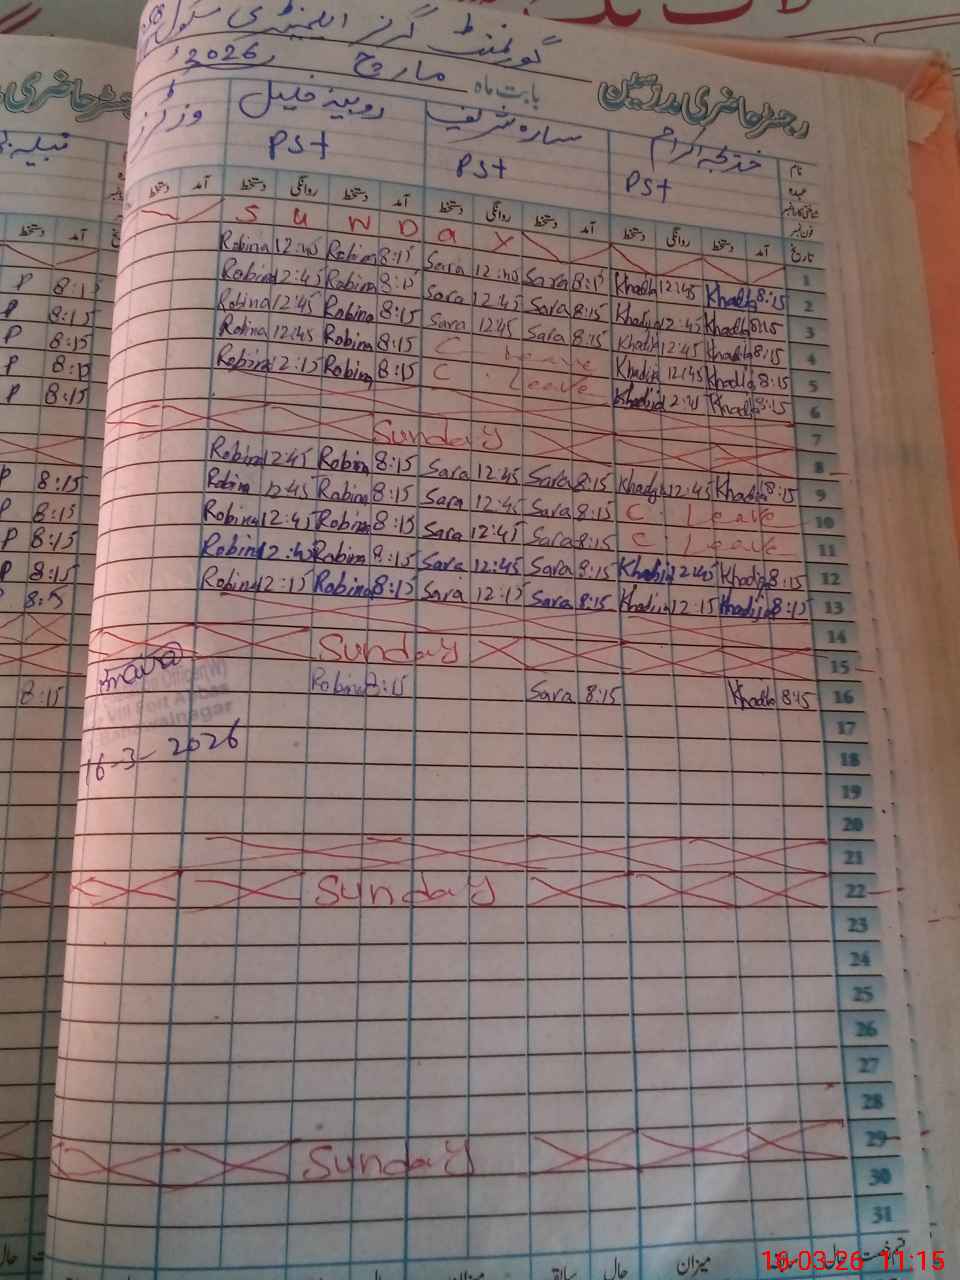 گورنمنٹ گرلز ایلیمنٹری سکول
رجسٹر حاضری مدرسین بابت ماہ مارچ 2026ء
نام خدیجہ اکرام سارہ شریف روبینہ خلیل
عہدہ PST PST PST
تاریخ آمد دستخط روانگی دستخط آمد دستخط روانگی دستخط آمد دستخط روانگی دستخط آمد دستخط
1 SUNDay
2 Robina 12:45 Robina 8:15 Sara 12:45 Sara 8:15 Khadija 12:45 Khadija 8:15
3 Robina 12:45 Robina 8:15 Sara 12:45 Sara 8:15 Khadija 12:45 Khadija 8:15
4 Robina 12:45 Robina 8:15 Sara 12:45 Sara 8:15 Khadija 12:45 Khadija 8:15
5 Robina 12:45 Robina 8:15 C. Leave Khadija 12:45 Khadija 8:15
6 Robina 12:15 Robina 8:15 C. Leave Khadija Khadija 8:15
7
8 Sunday
9 Robina 12:45 Robina 8:15 Sara 12:45 Sara 8:15 Khadija 12:45 Khadija 8:15
10 Robina 12:45 Robina 8:15 Sara 12:45 Sara 8:15 C. Leave
11 Robina 12:45 Robina 8:15 Sara 12:45 Sara 8:15 C. Leave
12 Robina 12:45 Robina 8:15 Sara 12:45 Sara 8:15 Khadija 12:45 Khadija 8:15
13 Robina 12:15 Robina 8:15 Sara 12:15 Sara 8:15 Khadija 12:15 Khadija 8:15
14
15 Sunday
16 Robina 8:15 Sara 8:15 Khadija 8:15
17
16-3-2026
18
19
20
21
22 Sunday
23
24
25
26
27
28
29 Sunday
30
31
میزان سابقہ حال میزان سابقہ حال قسم رخصت
16-03-26 11:15